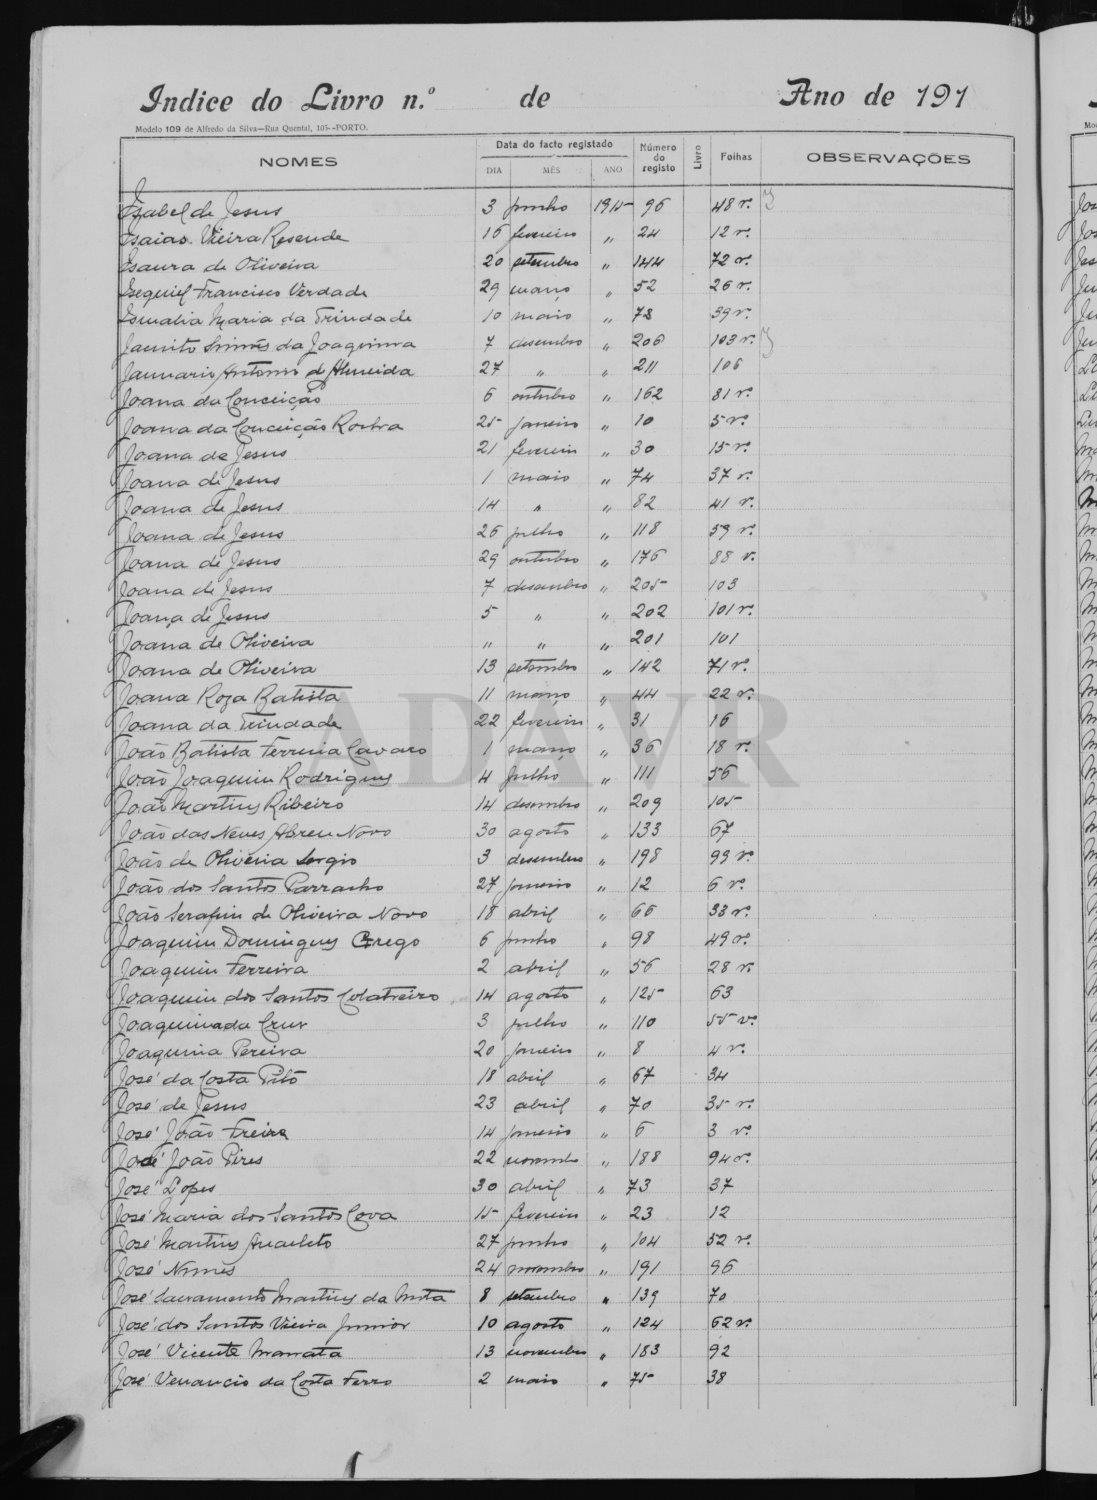 Indice do Livro n.º de Ano de 191
Modelo 109 de Alfredo da Silva—Rua Quental, 105--PORTO.
NOMES Data do facto registado DIA MÊS ANO Número do registo Livro Folhas OBSERVAÇÕES
Isabel de Jesus 3 junho 1915 96 48 v.
Isaias Vieira Resende 16 fevereiro " 24 12 v.
Isaura de Oliveira 20 setembro " 144 72 v.
Isequiel Francisco Verdade 29 março " 52 26 v.
Ismalia Maria da Trindade 10 maio " 78 39 v.
Jacinto Simões da Joaquina 7 desembro " 206 103 v.
Januario Antonio d'Almeida 27 " " 211 106
Joana da Conceição 6 outubro " 162 81 v.
Joana da Conceição 25 janeiro " 10 5 v.
Joana de Jesus 21 fevereiro " 30 15 v.
Joana de Jesus 1 maio " 74 37 v.
Joana de Jesus 14 " " 82 41 v.
Joana de Jesus 26 julho " 118 59 v.
Joana de Jesus 29 outubro " 176 88 v.
Joana de Jesus 7 desembro " 205 103
Joana de Jesus 5 " " 202 101 v.
Joana de Oliveira " " " 201 101
Joana de Oliveira 13 setembro " 142 71 v.
Joana Roza Batista 11 março " 44 22 v.
Joana da Trindade 22 fevereiro " 31 16
João Batista Ferreira 1 março " 36 18 v.
João Joaquim Rodrigues 4 julho " 111 56
João Martins Ribeiro 14 desembro " 209 105
João das Neves Abreu Novo 30 agosto " 133 67
João de Oliveira Sergio 3 desembro " 198 99 v.
João dos Santos Parracho 27 janeiro " 12 6 v.
João Serafim de Oliveira Novo 18 abril " 66 33 v.
Joaquim Domingues Grego 6 junho " 98 49 v.
Joaquim Ferreira 2 abril " 56 28 v.
Joaquim dos Santos 14 agosto " 125 63
Joaquina da Cruz 3 julho " 110 55 v.
Joaquina Pereira 20 janeiro " 8 4 v.
José da Costa 18 abril " 67 34
José de Jesus 23 abril " 70 35 v.
José João Freire 14 janeiro " 6 3 v.
José João Pires 22 novembro " 188 94 v.
José Lopes 30 abril " 73 37
José Maria dos Santos Cova 15 fevereiro " 23 12
José Martins Anacleto 27 junho " 104 52 v.
José Nunes 24 novembro " 191 96
José Sacramento Martins da 8 setembro " 139 70
José dos Santos Vieira Junior 10 agosto " 124 62 v.
José Vicente Manata 13 novembro " 183 92
José Venancio da Costa Ferro 2 maio " 75 38
ADAVR